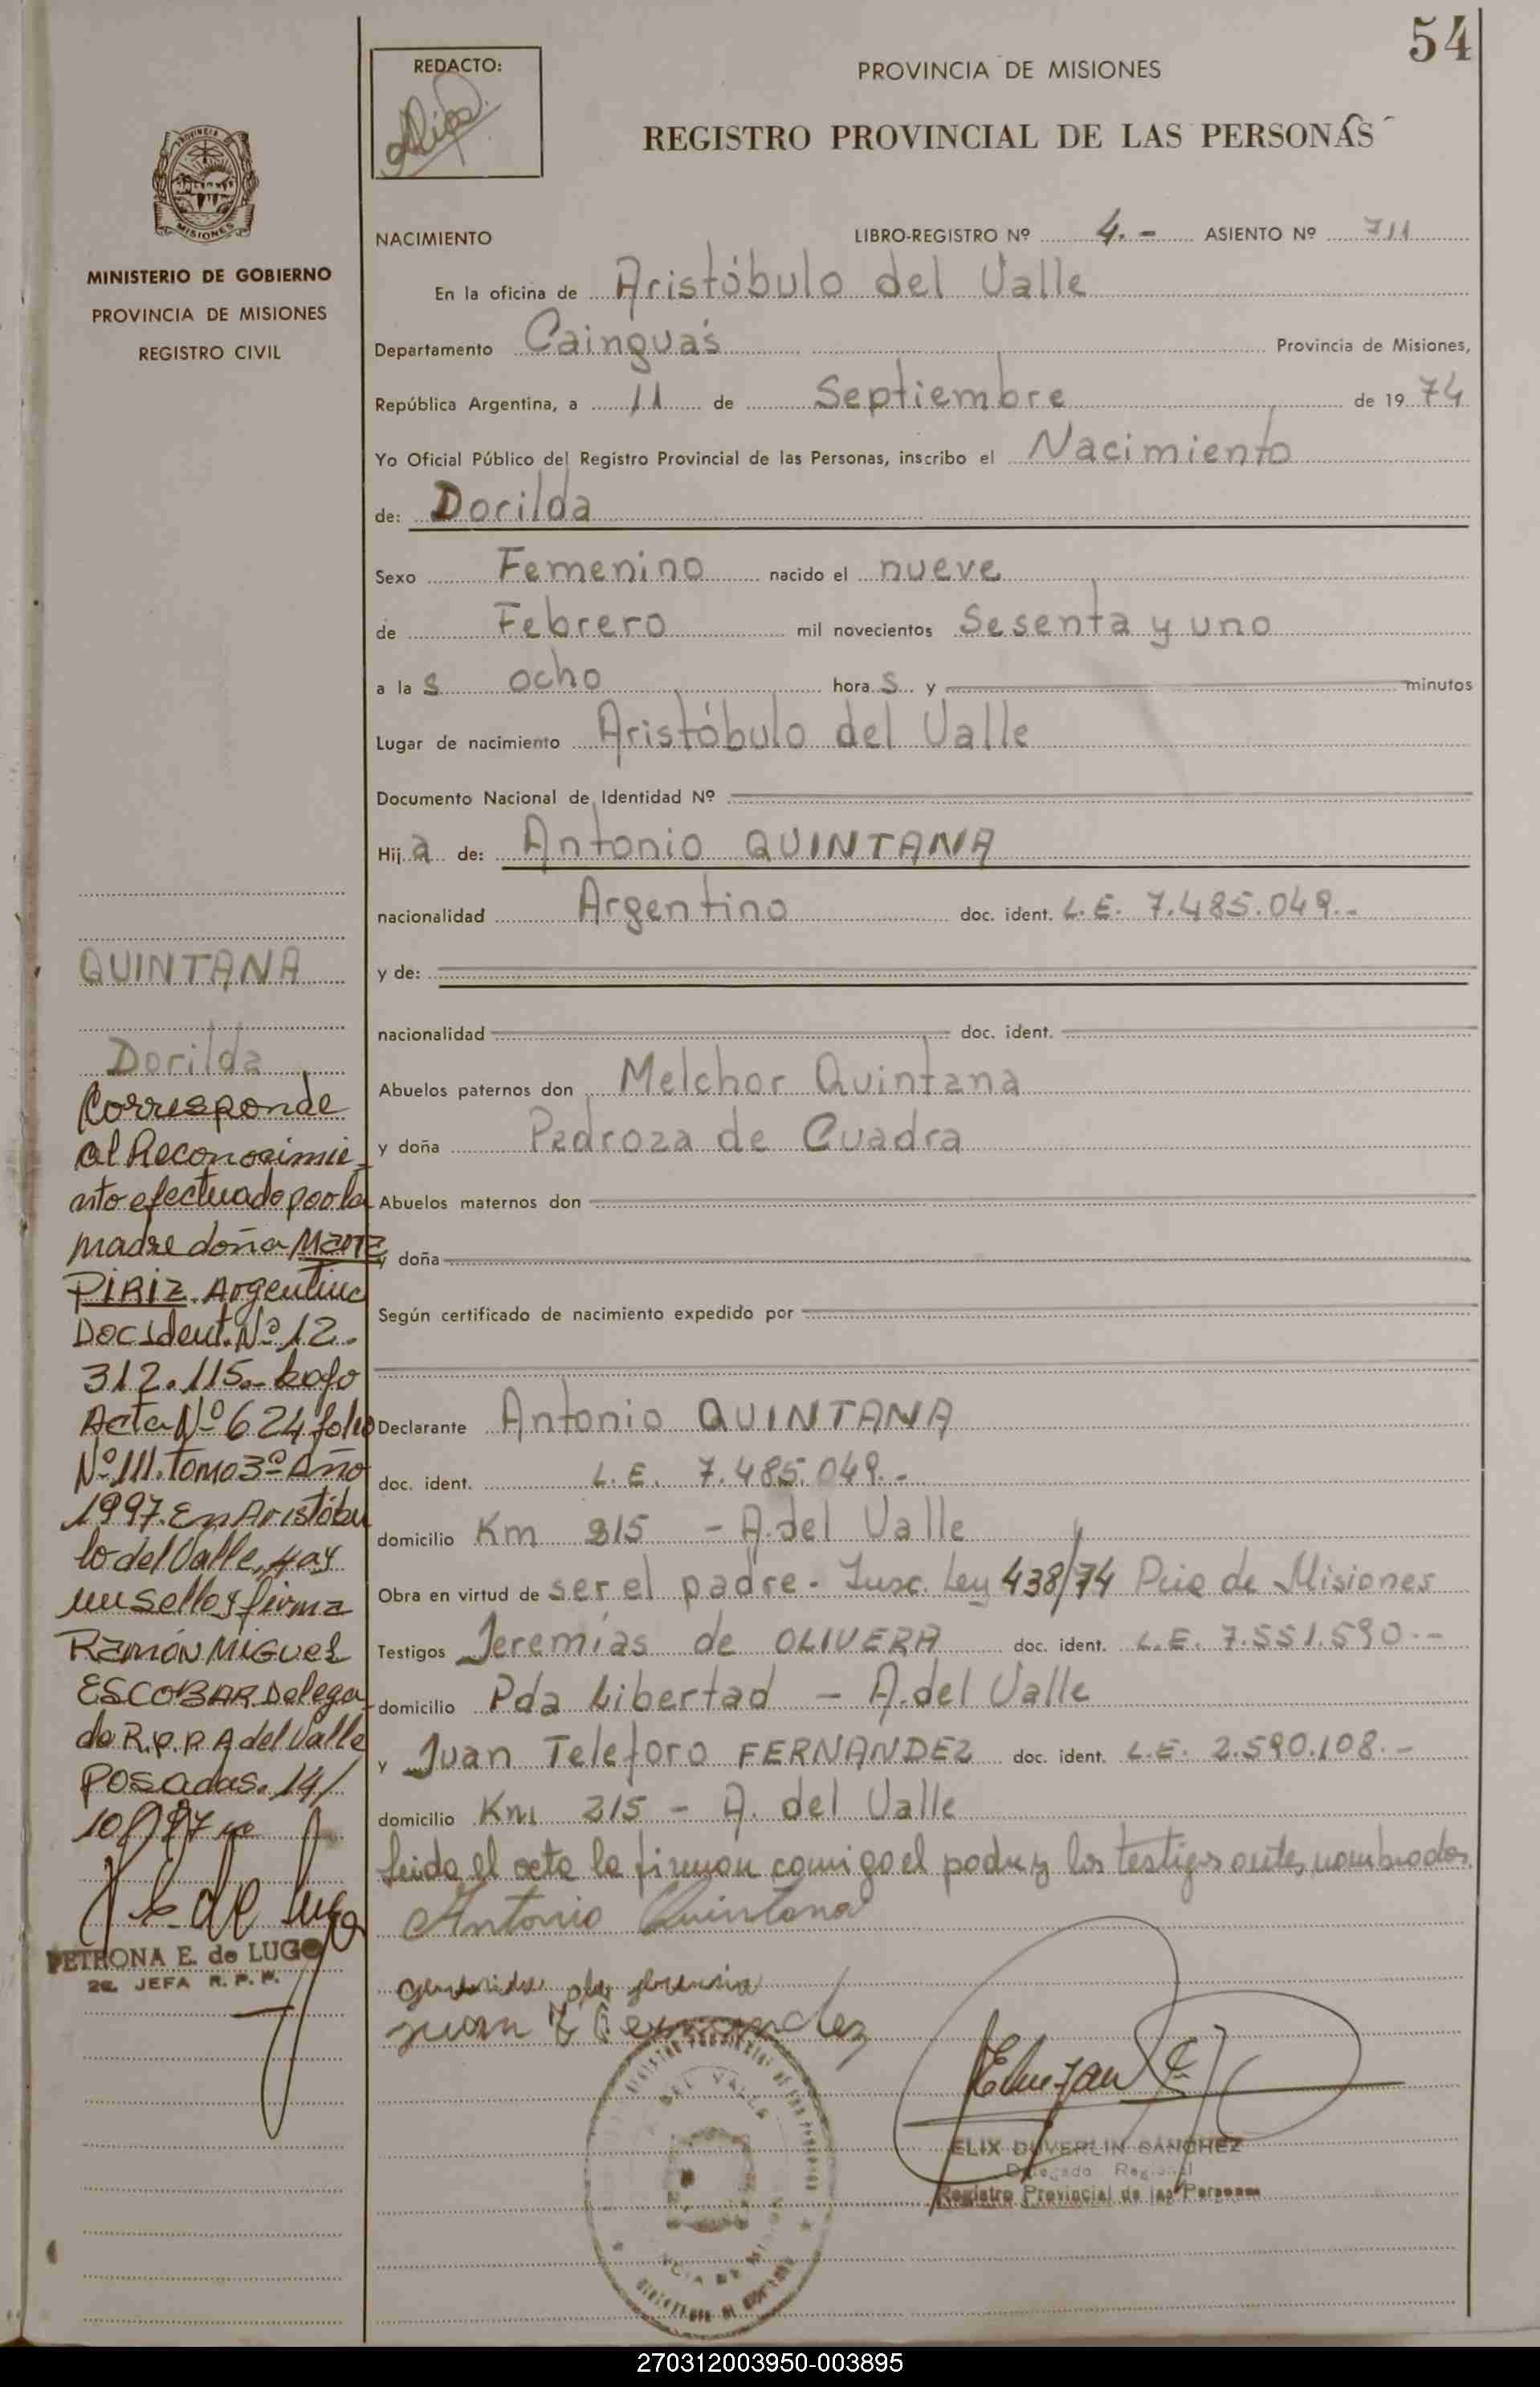 54
REDACTO:
PROVINCIA DE MISIONES
REGISTRO PROVINCIAL DE LAS PERSONAS
PROVINCIA
MISIONES
MINISTERIO DE GOBIERNO
PROVINCIA DE MISIONES
REGISTRO CIVIL
NACIMIENTO LIBRO-REGISTRO Nº 4.- ASIENTO Nº 711
En la oficina de Aristóbulo del Valle
Departamento Cainguás Provincia de Misiones,
República Argentina, a 11 de Septiembre de 1974
Yo Oficial Público del Registro Provincial de las Personas, inscribo el Nacimiento
de: Dorilda
Sexo Femenino nacido el nueve
de Febrero mil novecientos Sesenta y uno
a las ocho horas y minutos
Lugar de nacimiento Aristóbulo del Valle
Documento Nacional de Identidad Nº
Hija de: Antonio QUINTANA
nacionalidad Argentino doc. ident. L.E. 7.485.049.-
y de:
nacionalidad doc. ident.
Abuelos paternos don Melchor Quintana
y doña Pedroza de Cuadra
Abuelos maternos don
y doña
Según certificado de nacimiento expedido por
Declarante Antonio QUINTANA
doc. ident. L.E. 7.485.049.-
domicilio Km 215 - A.del Valle
Obra en virtud de ser el padre - Insc. Ley 438/74 Pcia de Misiones
Testigos Jeremías de OLIVERA doc. ident. L.E. 7.551.590.-
domicilio Pda Libertad - A.del Valle
y Juan Teleforo FERNANDEZ doc. ident. L.E. 2.590.108.-
domicilio Km 215 - A. del Valle
leida el acta la firman conmigo el padre y los testigos antes nombrados.
Antonio Quintana
Juan T Fernandez
ELIX DUVERLIN SANCHEZ
Delegado Regional
Registro Provincial de las Personas
QUINTANA
Dorilda
Corresponde
al Reconocimie
nto efectuado por la
madre doña Marta
PIRIZ. Argentina
Doc Ident. Nº 12.
312.115.- bajo
Acta Nº 624 folio
Nº 111. Tomo 3º Año
1997. En Aristóbu
lo del Valle, Hay
un sello y firma
RAMÓN MIGUEL
ESCOBAR Delega
do R.P.P A del Valle
Posadas. 14/
10/97
PETRONA E. de LUGO
2a. JEFA R. P. P.
270312003950-003895